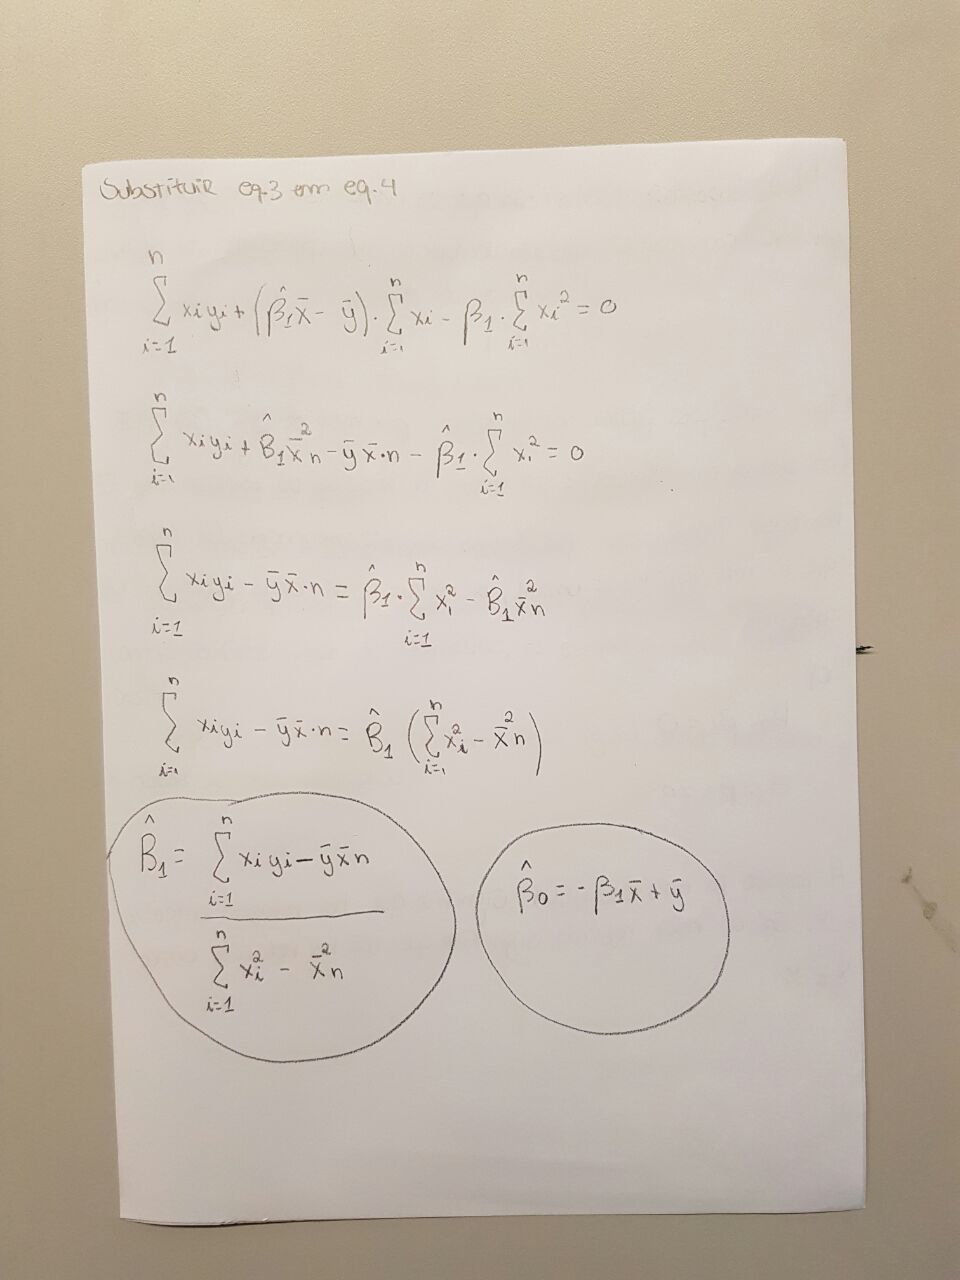 Substituir eq.3 em eq.4
∑_{i=1}^{n} xiyi + (β̂1x̄ - ȳ) · ∑_{i=1}^{n} xi - β1 · ∑_{i=1}^{n} xi² = 0
∑_{i=1}^{n} xiyi + β̂1x̄²n - ȳx̄·n - β̂1 · ∑_{i=1}^{n} xi² = 0
∑_{i=1}^{n} xiyi - ȳx̄·n = β̂1 · ∑_{i=1}^{n} xi² - β̂1x̄²n
∑_{i=1}^{n} xiyi - ȳx̄·n = β̂1 (∑_{i=1}^{n} xi² - x̄²n)
β̂1 = (∑_{i=1}^{n} xiyi - ȳx̄n) / (∑_{i=1}^{n} xi² - x̄²n)
β̂0 = -β1x̄ + ȳ